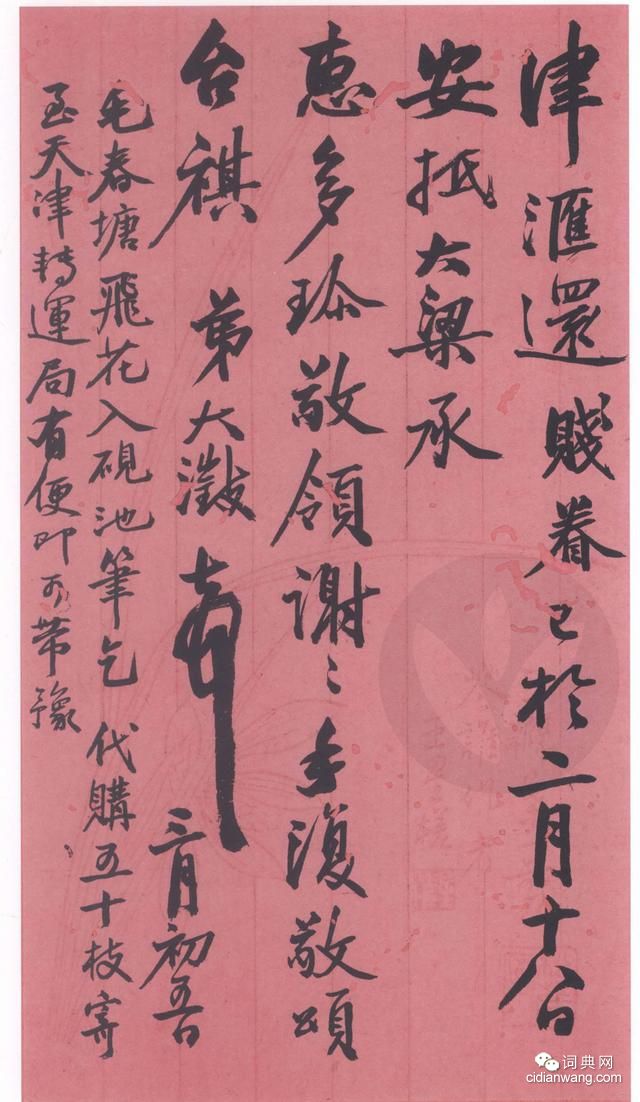 津滙還賤眷已於二月十八日
安抵大梁承
惠多珎敬領謝〻手復敬頌
台祺 弟大澂
三月初五日
毛春塘飛花入硯池筆乞代購五十枝寄
至天津轉運局有便即可帶豫
词典网
cidianwang.com